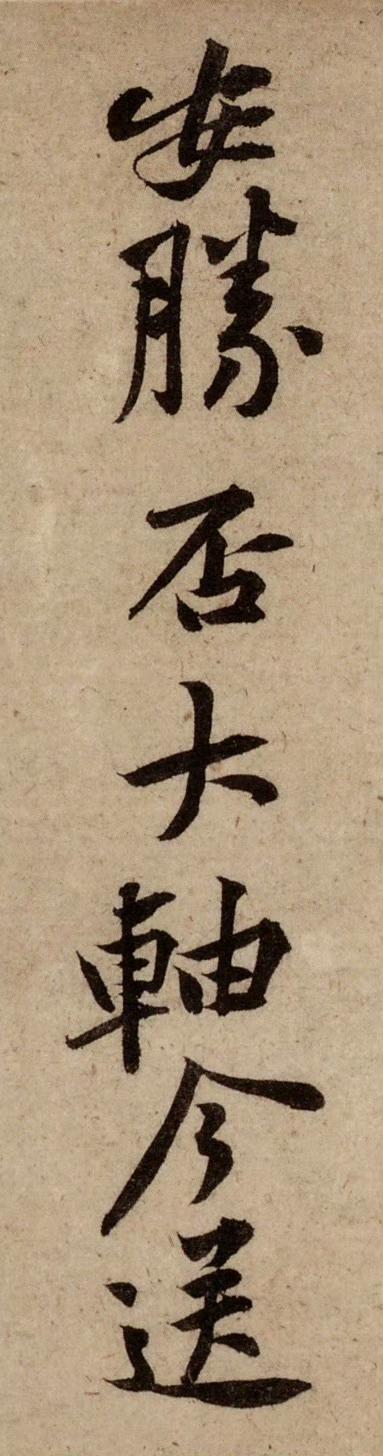 安勝否大軸今送